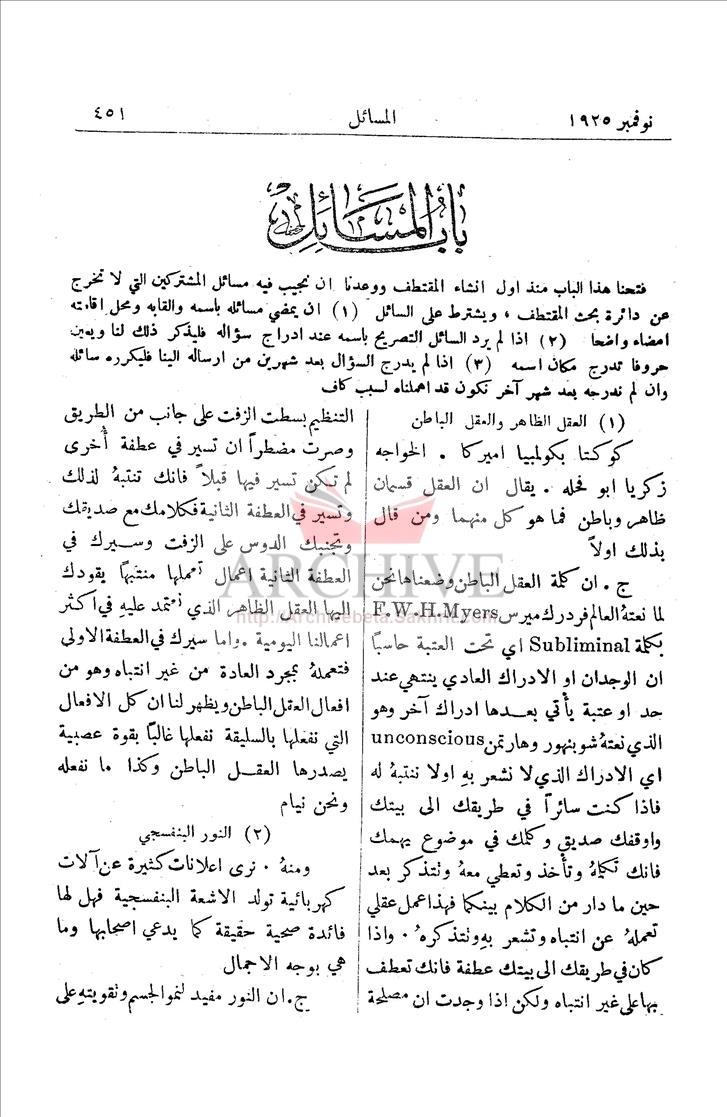 نوفمبر ١٩٢٥
المسائل
٤٥١
باب المسائل
فتحنا هذا الباب منذ اول انشاء المقتطف ووعدنا ان نجيب فيه مسائل المشتركين التي لا تخرج
عن دائرة بحث المقتطف ، ويشترط على السائل (١) ان يمضي مسائله باسمه والقابه ومحل اقامته
امضاء واضحا (٢) اذا لم يرد السائل التصريح باسمه عند ادراج سؤاله فليذكر ذلك لنا ويعين
حروفا تدرج مكان اسمه (٣) اذا لم يدرج السؤال بعد شهرين من ارساله الينا فليكرره سائله
وان لم ندرجه بعد شهر آخر نكون قد اهملناه لسبب كاف
(١) العقل الظاهر والعقل الباطن
كوكتا بكولمبيا اميركا . الخواجه
زكريا ابو فخله . يقال ان العقل قسمان
ظاهر وباطن فما هو كل منهما ومن قال
بذلك اولاً
ج . ان كلمة العقل الباطن وضعناها نحن
لما نعتهُ العالم فردرك ميرس F.W.H.Myers
بكلمة Subliminal اي تحت العتبة حاسباً
ان الوجدان او الادراك العادي ينتهي عند
حد او عتبة يأتي بعدها ادراك آخر وهو
الذي نعتهُ شوبنهور وهارتمن unconscious
اي الادراك الذي لا نشعر بهِ اولا ننتبهُ له
فاذا كنت سائراً في طريقك الى بيتك
واوقفك صديق وكلمك في موضوع يهمك
فانك تكلمهُ وتأخذ وتعطي معهُ وتتذكر بعد
حين ما دار من الكلام بينكما فهذا عمل عقلي
تعملهُ عن انتباه وتشعر بهِ وتتذكرهُ . واذا
كان في طريقك الى بيتك عطفة فانك تعطف
بها على غير انتباه ولكن اذا وجدت ان مصلحة
التنظيم بسطت الزفت على جانب من الطريق
وصرت مضطراً ان تسير في عطفة أخرى
لم تكن تسير فيها قبلاً فانك تنتبهُ لذلك
وتسير في العطفة الثانية فكلامك مع صديقك
وتجنبك الدوس على الزفت وسيرك في
العطفة الثانية اعمال تعملها منتبهاً يقودك
اليها العقل الظاهر الذي تعتمد عليهِ في اكثر
اعمالنا اليومية . واما سيرك في العطفة الاولى
فتعملهُ بمجرد العادة من غير انتباه وهو من
افعال العقل الباطن ويظهر لنا ان كل الافعال
التي نفعلها بالسليقة نفعلها غالباً بقوة عصبية
يصدرها العقل الباطن وكذا ما نفعله
ونحن نيام
(٢) النور البنفسجي
ومنهُ . نرى اعلانات كثيرة عن آلات
كهربائية تولد الاشعة البنفسجية فهل لها
فائدة صحية حقيقة كما يدعي اصحابها وما
هي بوجه الاجمال
ج . ان النور مفيد لنمو الجسم وتقويتهِ على
ARCHIVE
http://Archivebeta.Sakhrit.com